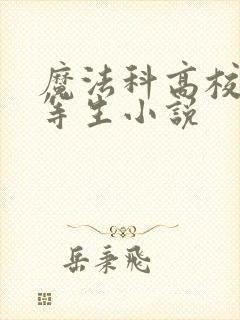 魔法科高校
等生小说
岳秉飛